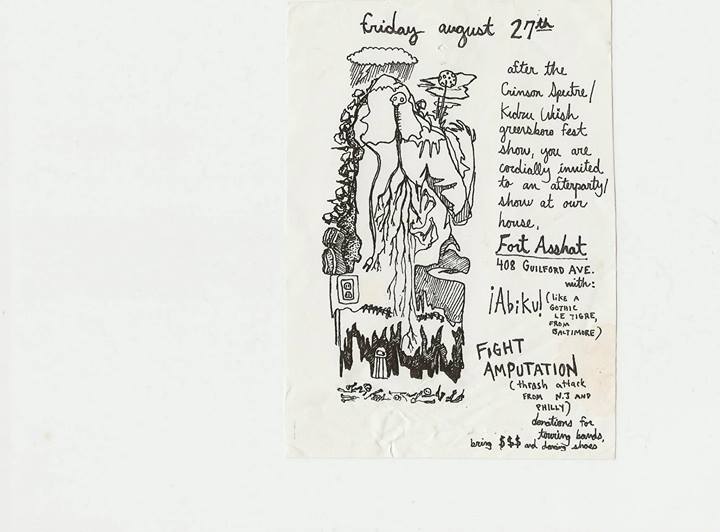 friday august 27th
after the
Crimson Spectre/
Kudzu Wish
greensboro fest
show, you are
cordially invited
to an afterparty/
show at our
house,
Fort Asshat
408 GUILFORD AVE.
with:
¡Abiku! (LIKE A
GOTHIC
LE TIGRE,
FROM
BALTIMORE)
FIGHT
AMPUTATION
(thrash attack
FROM N.J AND
PHILLY)
donations for
touring bands,
bring $$$ and dancing shoes